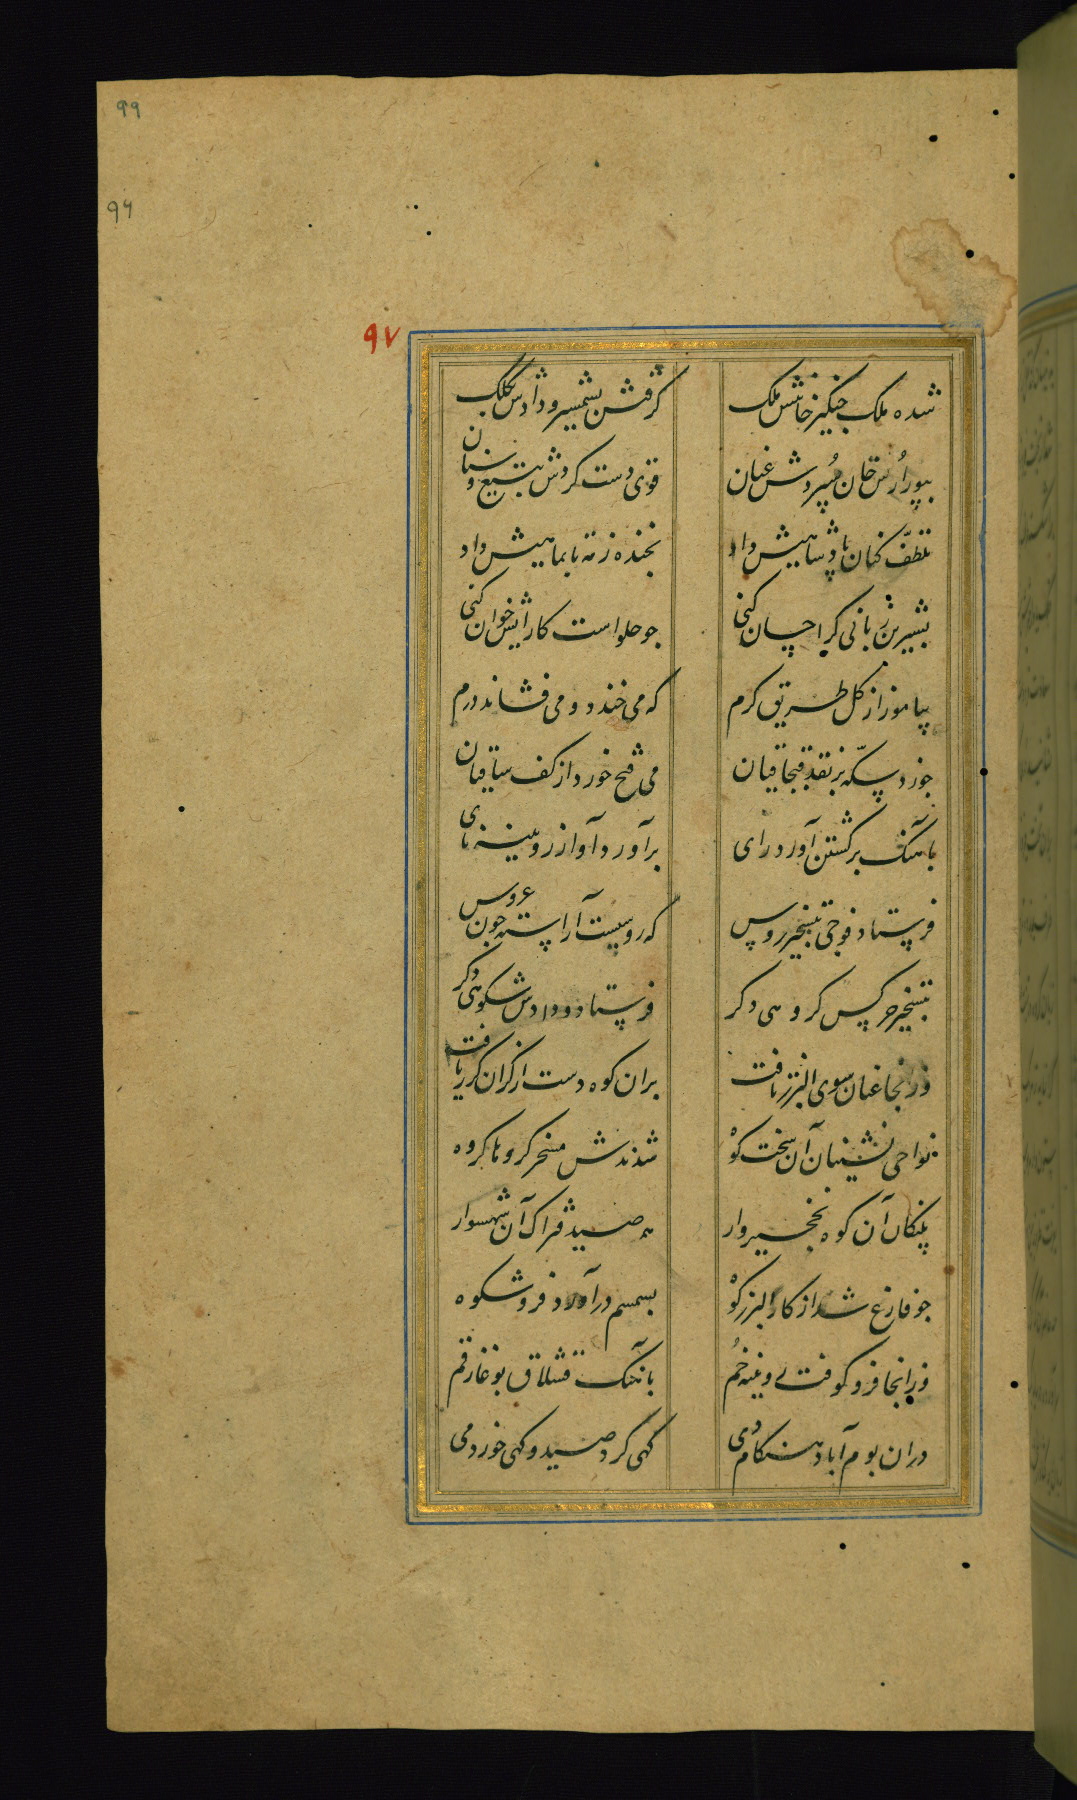 ۹۹
۹۶
۹۷
شده ملک چنکیز خانش ملک گرفتش بشمشیر و دادش بکلک
بپور اُرس خان سپردش عنان قوی دست کردش بتیغ و سنان
تلطّف کنان پادشاهیش داد بخنده زمه تا بماهیش داد
بشیرین زبانی کرا چسان کنی جو حلواست کارایش خوان کنی
بیاموز از کل طریق کرم که می خندد و می فشاند درم
جو زد سکّه بر نقد قبجاقیان می فتح خورد از کف ساقیان
باهنک برکشتن آورد رای برآورد آواز رویینه نای
فرستاد فوجی بتسخیر روس که روسیست آراسته جون عروس
بتسخیر جرکس کروهی دکر فرستاد و دادش شکوهی دکر
وزانجا عنان سوی البرز تافت بران کوه دست از کران کرز یافت
نواحی نشینان آن سخت کوه شدندش مسخر کروها کروه
پلنکان آن کوه نخجیروار همه صید فتراک آن شهسوار
جو فارغ شد از کار البرز کوه بسمسم درآمد فر و شکوه
وزانجا فرو کوفت رویینه خُم بآهنک قشلاق بوغاز قم
دران بوم آباد هنکام دی کهی کرد صید و کهی خورد می